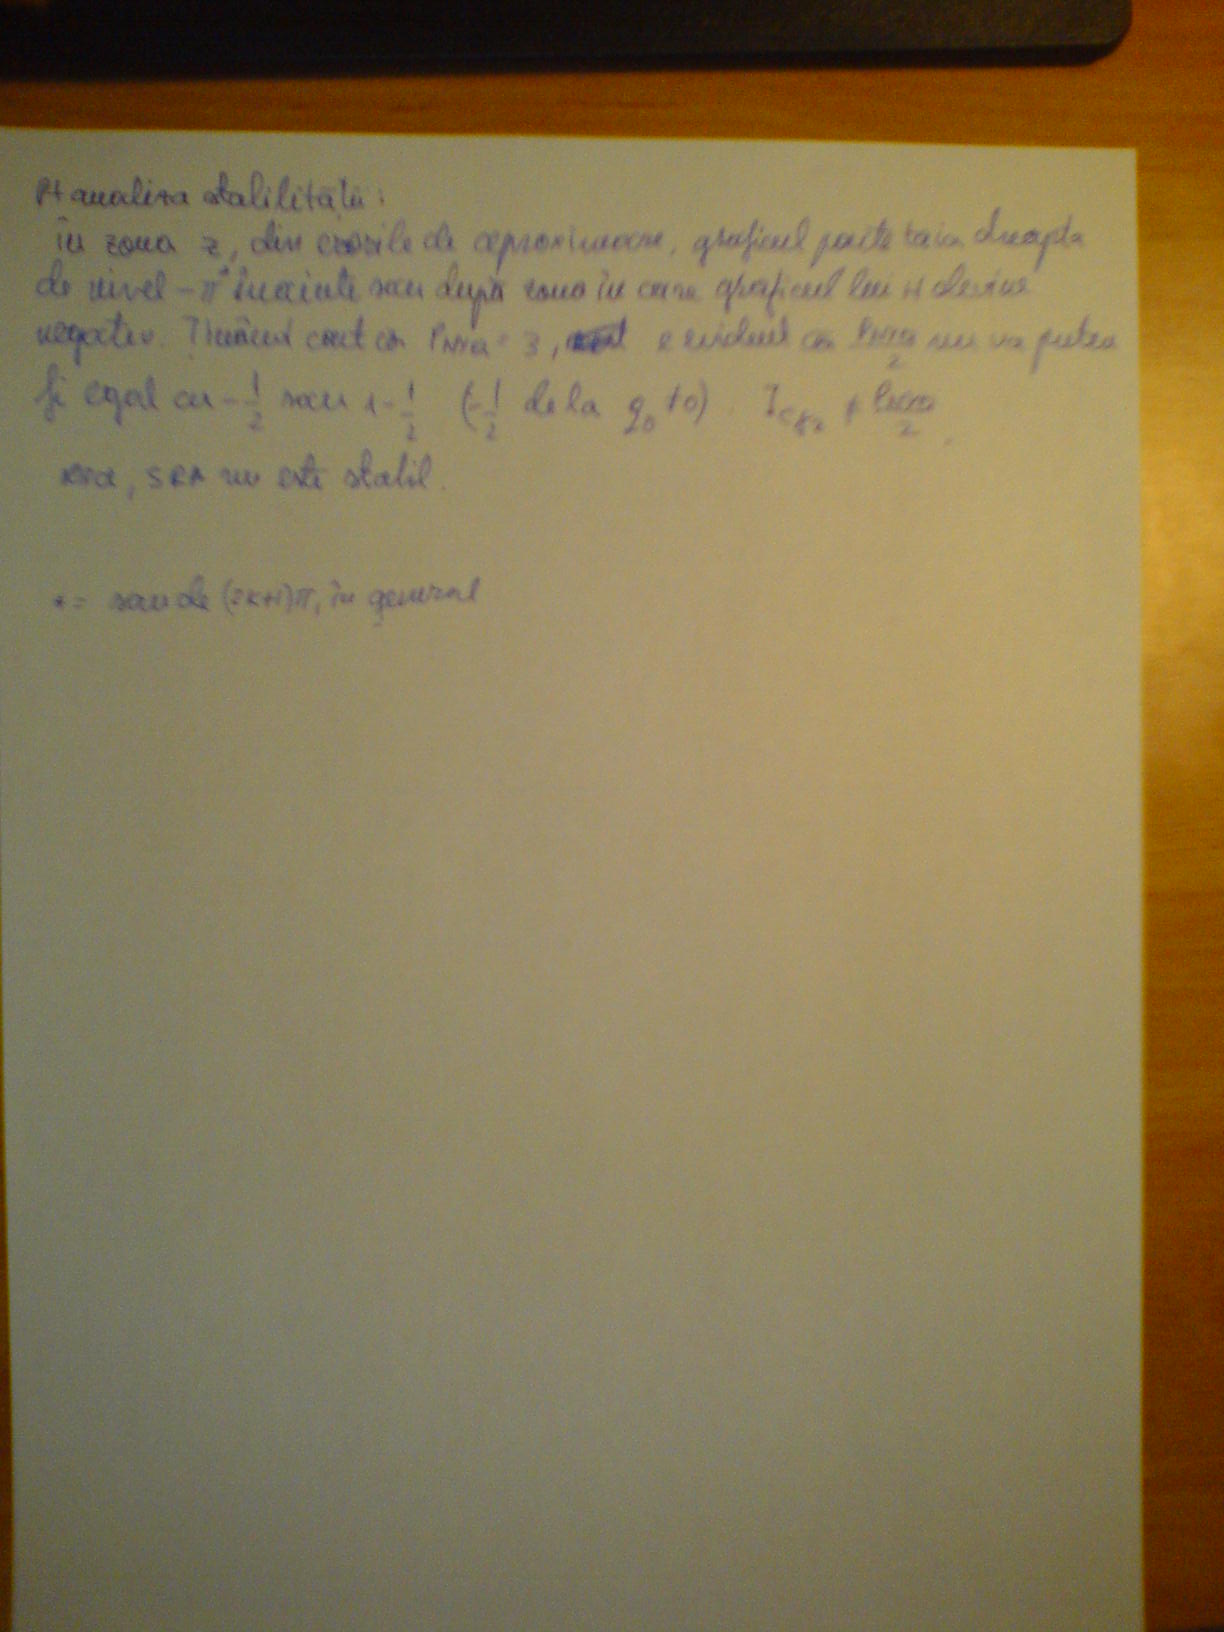 Pt analiza stabilității:
în zona z, din erorile de aproximare, graficul poate taia dreapta
de nivel -π* înainte sau după zona în care graficul lui H devine
negativ. Ținând cont că P = 3, e evident că nu va putea
fi egal cu -1/2 sau 1-1/2 (-1/2 de la q₀≠0). ≠
Așa, SRA nu este stabil.
*= sau de (2k+1)π, în general